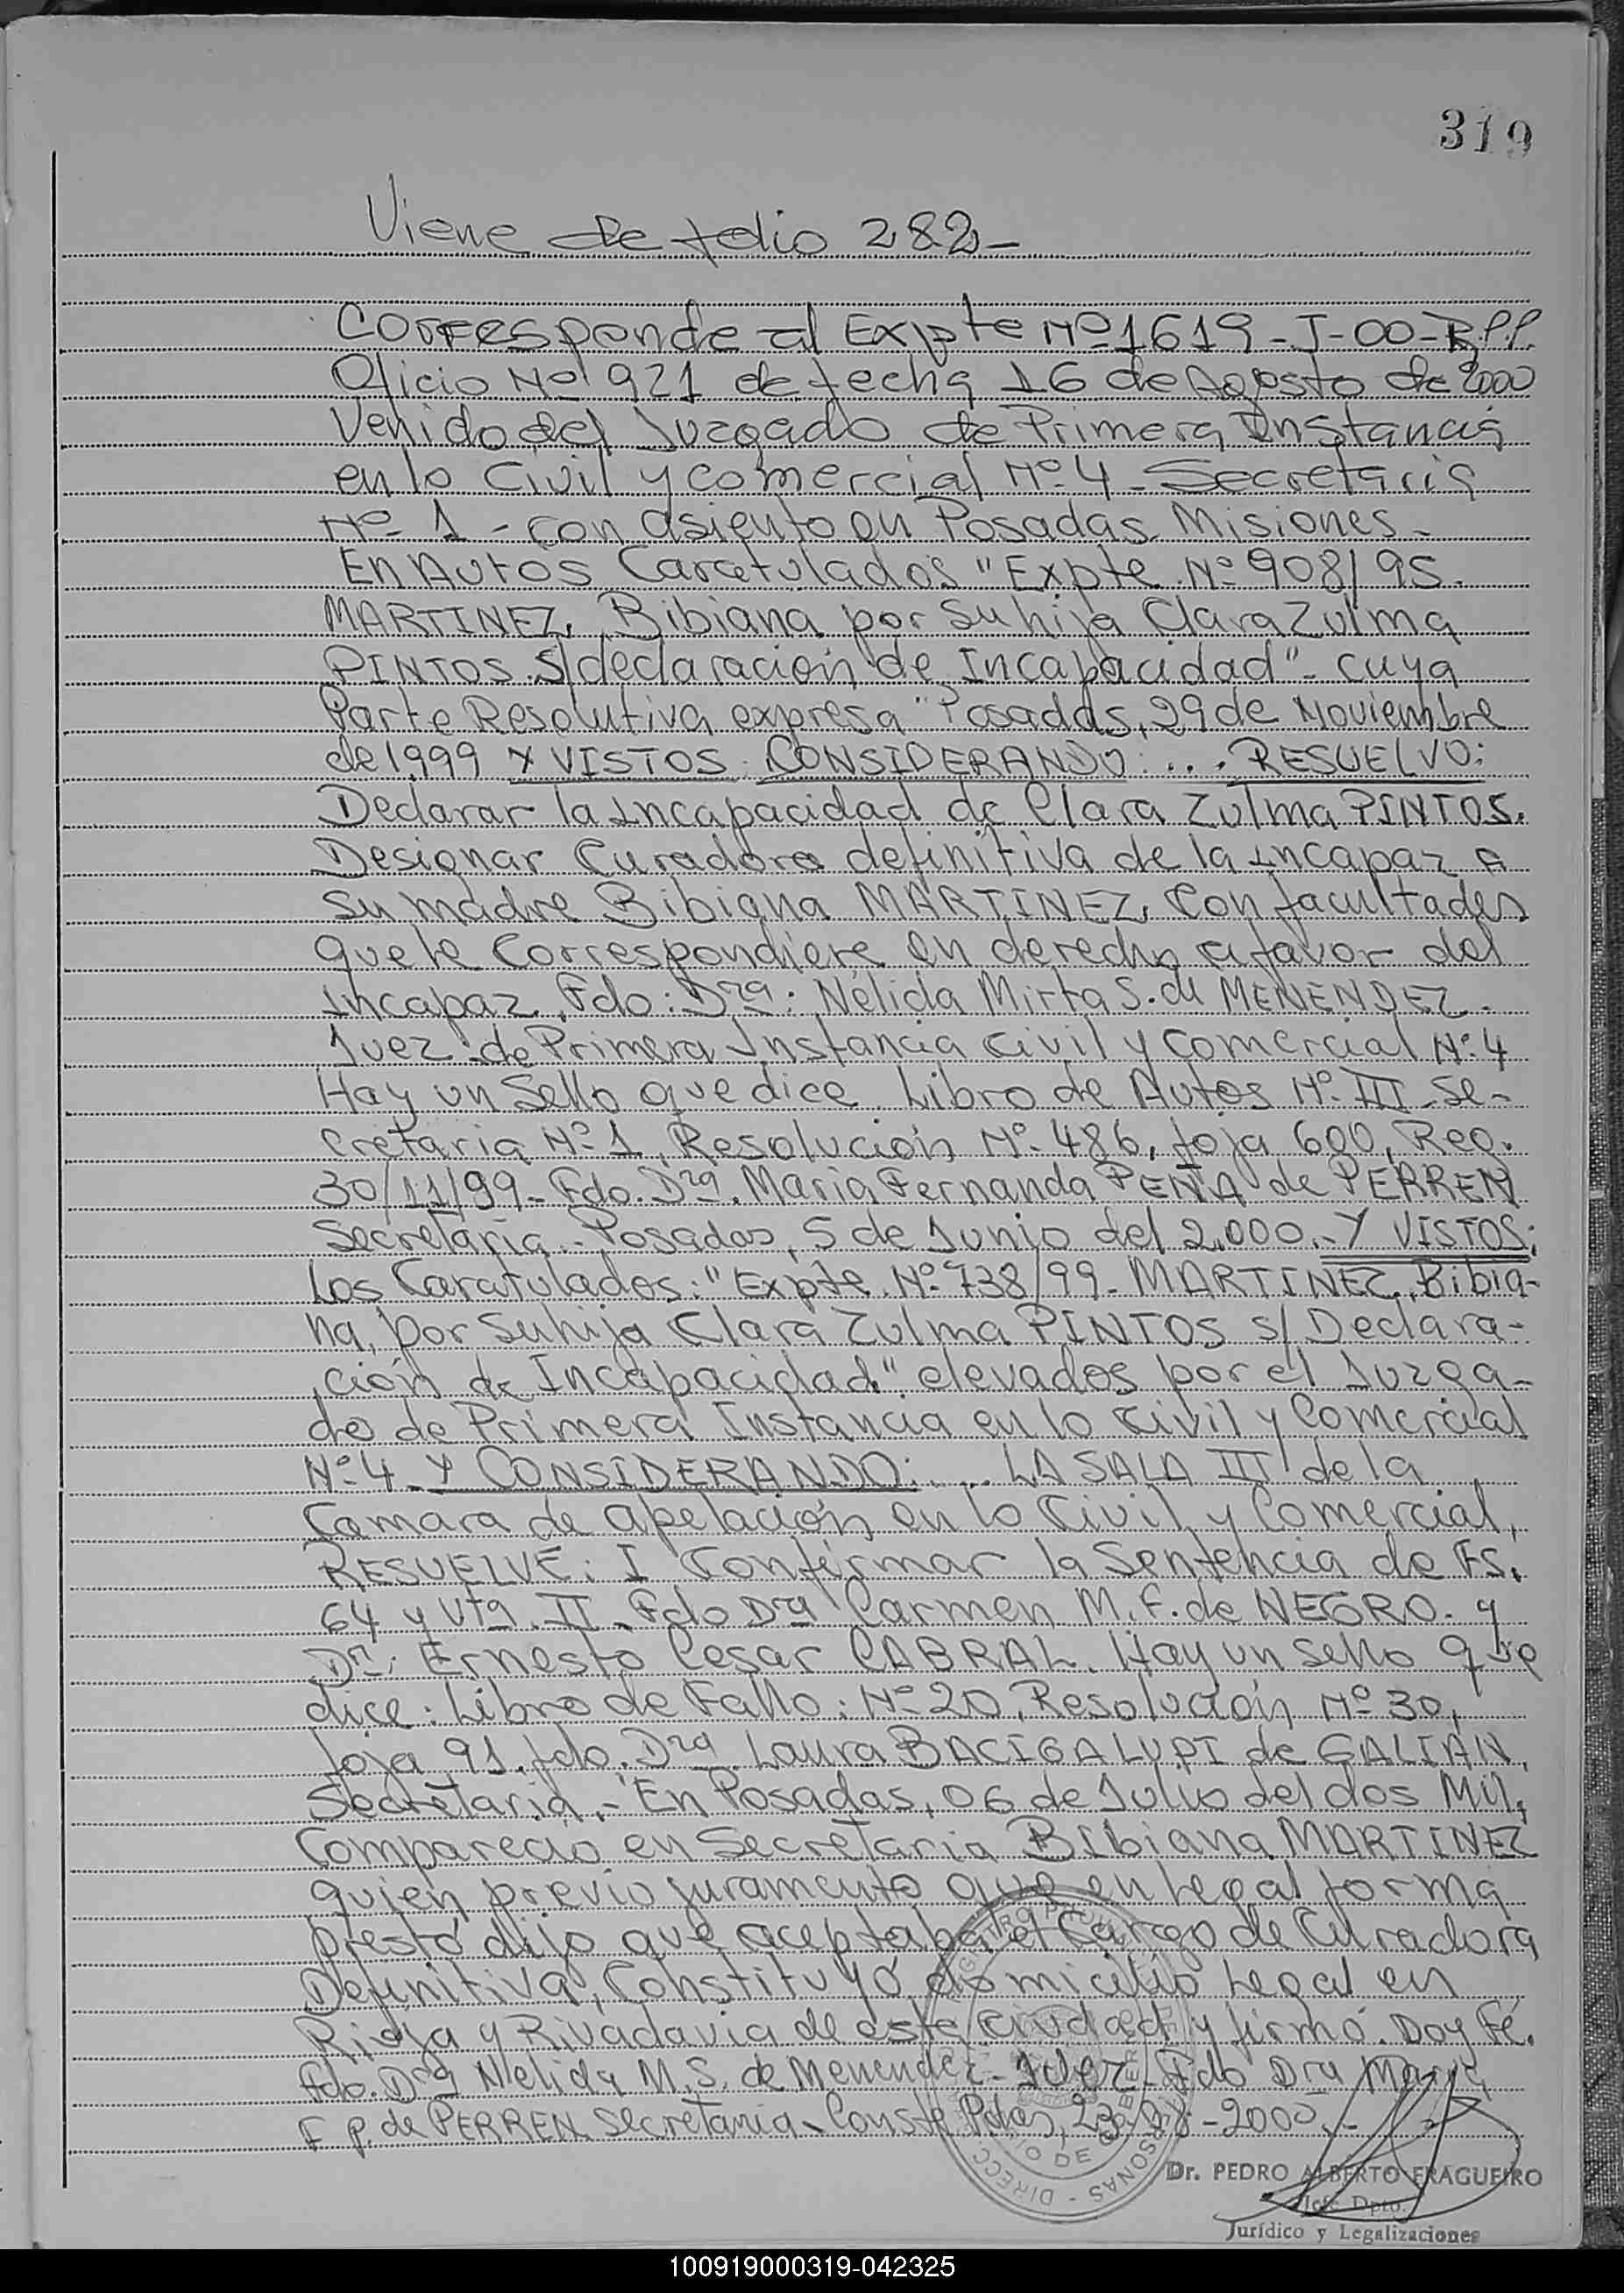 319
Viene de folio 282-
Corresponde al Expte Nº 1619-J-00-R.P.P.
Oficio Nº 921 de fecha 16 de Agosto de 2000
Venido del Juzgado de Primera Instancia
en lo Civil y Comercial Nº 4 - Secretaria
Nº 1 - con asiento en Posadas Misiones -
En Autos Caratulados "Expte. Nº 908/95.
MARTINEZ, Bibiana por su hija Clara Zulma
PINTOS S/declaración de Incapacidad" - cuya
Parte Resolutiva expresa "Posadas, 29 de Noviembre
de 1999 Y VISTOS: CONSIDERANDO: .... RESUELVO:
Declarar la Incapacidad de Clara Zulma PINTOS.
Designar Curadora definitiva de la incapaz a
su madre Bibiana MARTINEZ, Con facultades
que le Correspondiere en derecho a favor del
Incapaz. Fdo: Dra: Nélida Mirta S. de MENENDEZ.
Juez de Primera Instancia Civil y Comercial Nº 4
Hay un Sello que dice Libro de Autos Nº III - Se-
cretaria Nº 1, Resolución Nº 486, foja 600, Reg.
30/11/99 - Fdo. Dra. Maria Fernanda PEÑA de PERREN
Secretaria.- Posadas, 5 de Junio del 2.000.- Y VISTOS:
Los Caratulados: "Expte. Nº 738/99 - MARTINEZ, Bibia-
na, por su hija Clara Zulma PINTOS s/ Declara-
ción de Incapacidad" elevados por el Juzga-
do de Primera Instancia en lo Civil y Comercial
Nº 4 Y CONSIDERANDO: .... LA SALA III de la
Camara de apelación en lo Civil y Comercial,
RESUELVE: I Confirmar la Sentencia de Fs.
64 y Vta. II - Fdo Dra Carmen M. F. de NEGRO. y
Dr. Ernesto Cesar CABRAL. Hay un Sello que
dice: Libro de Fallo: Nº 20, Resolución Nº 30,
foja 91. fdo. Dra. Laura BACIGALUPI de GALIAN,
Secretaria.- En Posadas, 06 de Julio del dos Mil,
Compareció en Secretaria Bibiana MARTINEZ
quien previo juramento que en legal forma
prestó dijo que aceptaba el Cargo de Curadora
Definitiva, Constituyó domicilio Legal en
Rioja y Rivadavia de esta ciudad y firmó. Doy Fé.
fdo. Dra Nelida M. S. de Menendez - Juez - Fdo Dra Maria
F P. de PERREN Secretaria - Conste Pdas, 23-08-2000.-
Dr. PEDRO ALBERTO FRAGUEIRO
Jefe Dpto.
Jurídico y Legalizaciones
100919000319-042325